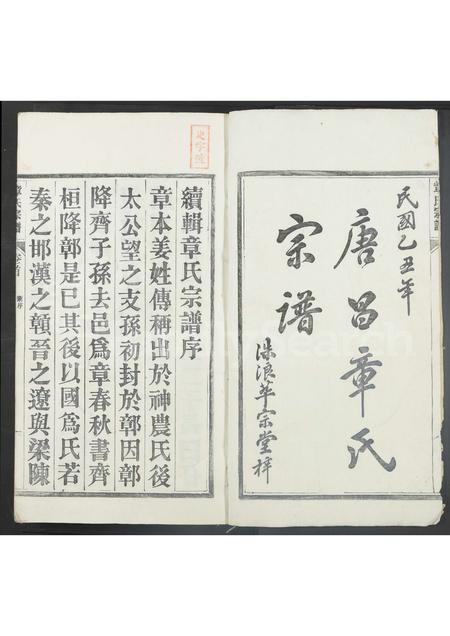 民國乙丑年
唐昌章氏
宗譜
宗堂梓
續輯章氏宗譜序
章本姜姓傳稱出於神農氏後
太公望之支孫初封於鄣因鄣
降齊子孫去邑為章春秋書齊
桓降鄣是已其後以國為氏若
秦之邯漢之贑晉之遼與梁陳
章氏宗譜